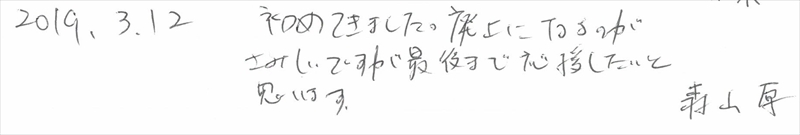 2019. 3.12 初めてきました。廃止になるのが
さみしいですが最後まで応援したいと
思います。
森山 厚